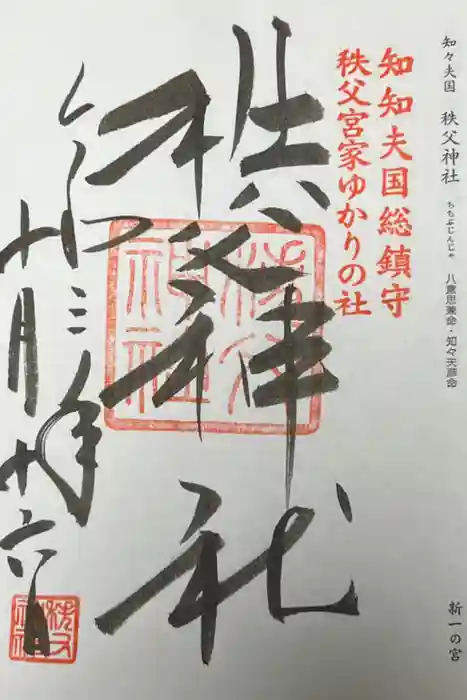 知々夫国 秩父神社 ちちぶじんじゃ 八意思兼命・知々夫彦命
新一の宮
知知夫国総鎮守
秩父宮家ゆかりの社
秩父神社
令和三年
十月十六日
秩父
神社